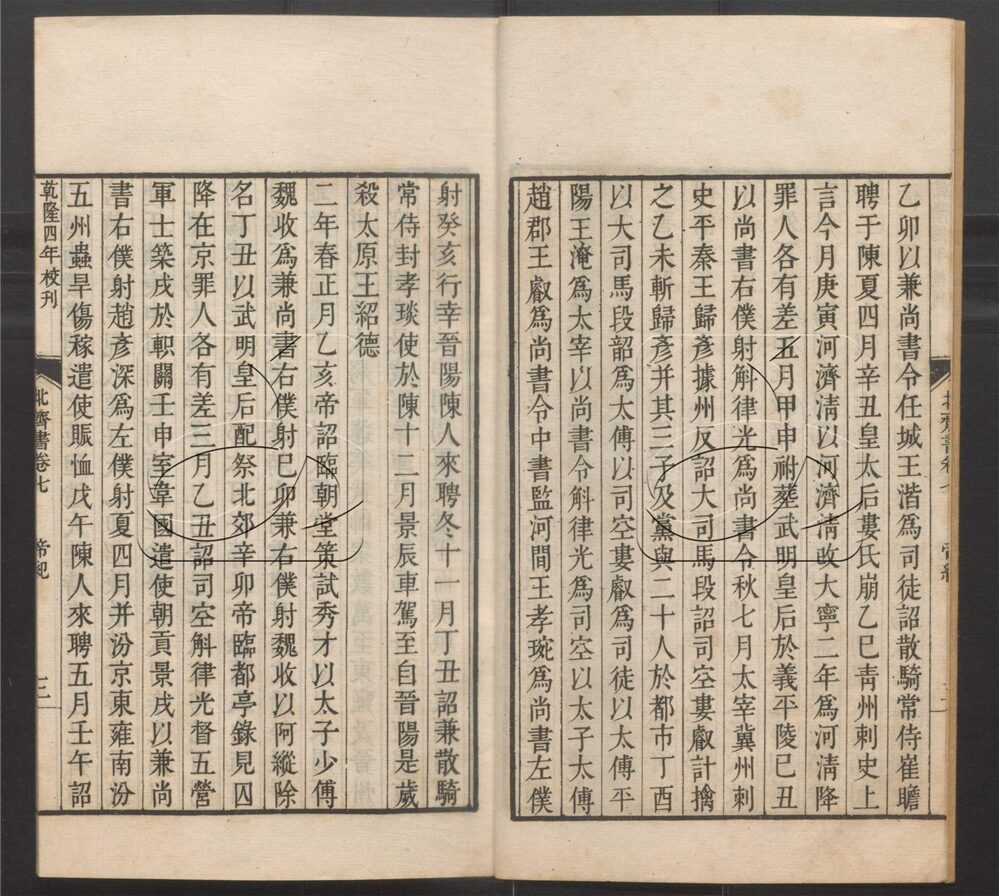 乙卯以兼尚書令任城王湝爲司徒詔散騎常侍崔瞻
聘于陳夏四月辛丑皇太后婁氏崩乙巳靑州刺史上
言今月庚寅河濟淸以河濟淸改大寧二年爲河淸降
罪人各有差五月甲申祔葬武明皇后於義平陵己丑
以尚書右僕射斛律光爲尚書令秋七月太宰冀州刺
史平秦王歸彥據州反詔大司馬段韶司空婁叡計擒
之乙未斬歸彥并其三子及黨與二十人於都市丁酉
以大司馬段韶爲太傅以司空婁叡爲司徒以太傅平
陽王淹爲太宰以尚書令斛律光爲司空以太子太傅
趙郡王叡爲尚書令中書監河間王孝琬爲尚書左僕
射癸亥行幸晉陽陳人來聘冬十一月丁丑詔兼散騎
常侍封孝琰使於陳十二月景辰車駕至自晉陽是歲
殺太原王紹德
二年春正月乙亥帝詔臨朝堂策試秀才以太子少傅
魏收爲兼尚書右僕射己卯兼右僕射魏收以阿縱除
名丁丑以武明皇后配祭北郊辛卯帝臨都亭錄見囚
降在京罪人各有差三月乙丑詔司空斛律光督五營
軍士築戍於軹關壬申室韋國遣使朝貢景戌以兼尚
書右僕射趙彥深爲左僕射夏四月并汾京東雍南汾
五州蟲旱傷稼遣使賑恤戊午陳人來聘五月壬午詔
乾隆四年校刊
北齊書卷七
帝紀
三